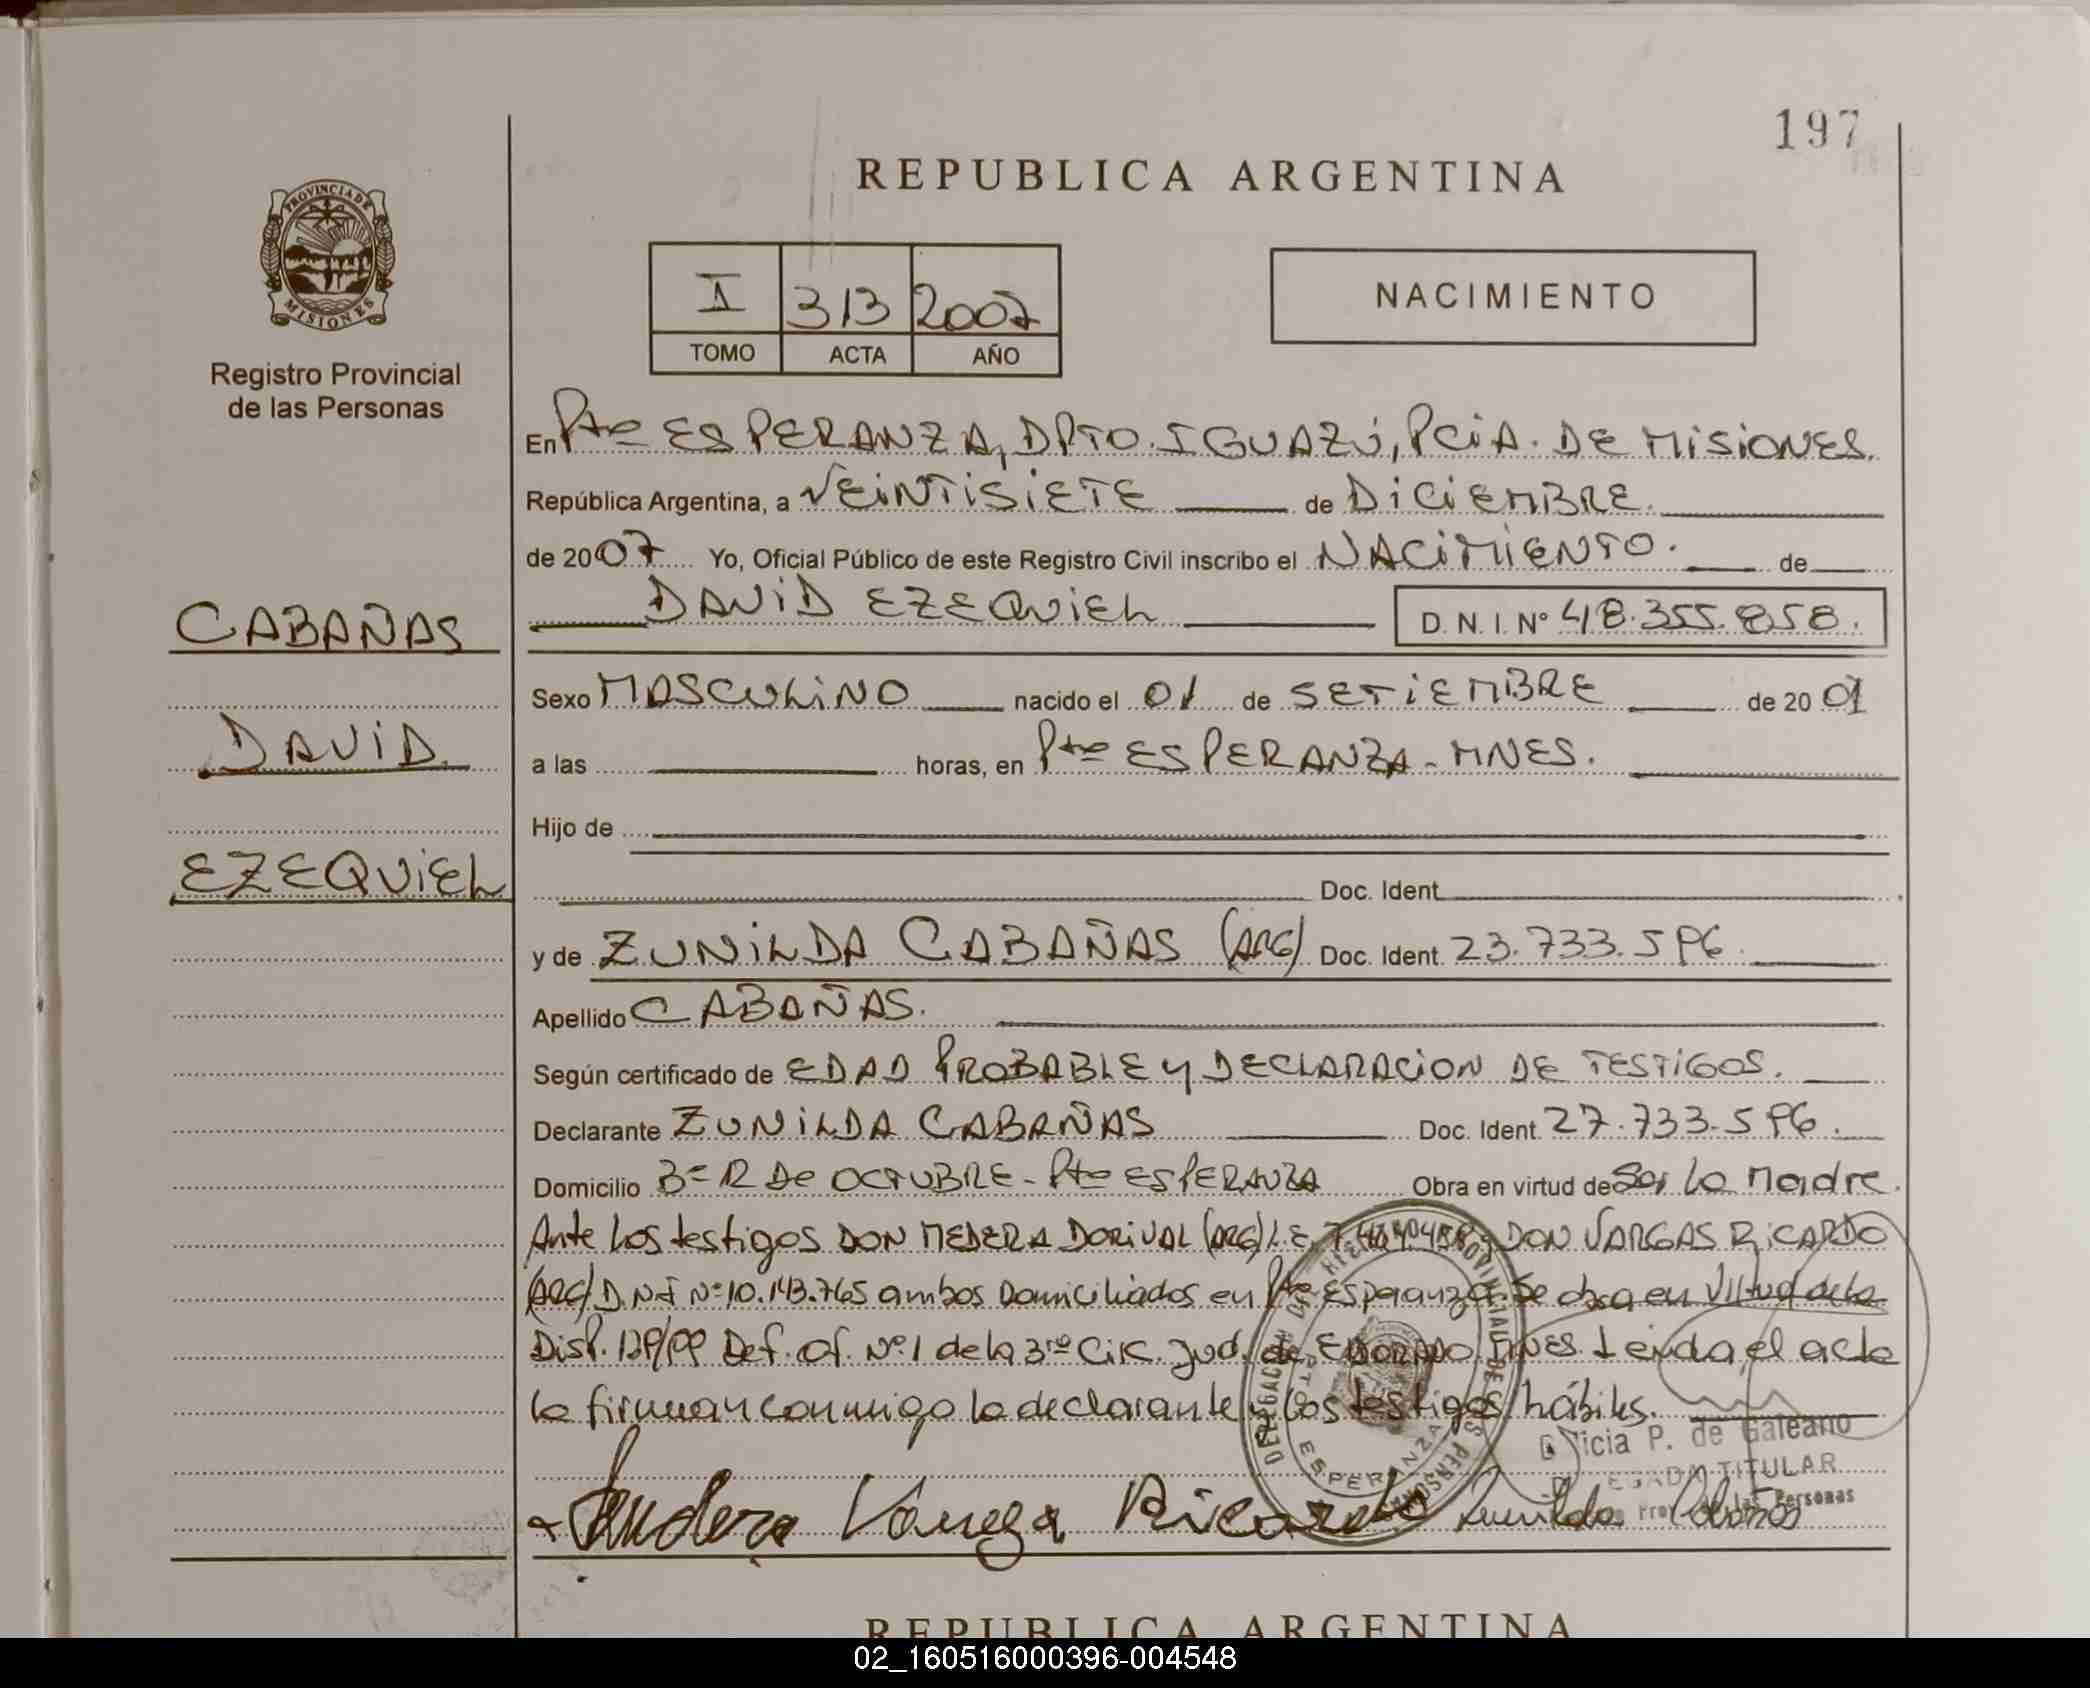 197
REPUBLICA ARGENTINA
PROVINCIA DE
MISIONES
Registro Provincial
de las Personas
I 313 2007
TOMO ACTA AÑO
NACIMIENTO
En Pto ESPERANZA, DPTO. IGUAZÚ, PCIA. DE MISIONES.
República Argentina, a VEINTISIETE de DICIEMBRE.
de 2007 Yo, Oficial Público de este Registro Civil inscribo el NACIMIENTO. de
DAVID EZEQUIEL D.N.I.Nº 48.355.858.
CABAÑAS
DAVID
EZEQUIEL
Sexo MASCULINO nacido el 01 de SETIEMBRE de 2001
a las horas, en Pto ESPERANZA - MNES.
Hijo de
Doc. Ident.
y de ZUNILDA CABAÑAS (ARG) Doc. Ident. 23.733.596.
Apellido CABAÑAS.
Según certificado de EDAD PROBABLE y DECLARACION DE TESTIGOS.
Declarante ZUNILDA CABAÑAS Doc. Ident. 27.733.596.
Domicilio Bº 12 De OCTUBRE - Pto ESPERANZA Obra en virtud de Ser la Madre.
Ante los testigos DON MEDERA DORIVAL (ARG) L.E. DON VARGAS RICARDO
(ARG) D.N.I Nº 10.143.765 ambos Domiciliados en Pto Esperanza. Se obra en Virtud de la
Disp. 129/99 Def. Of. Nº 1 de la 3ra Cir. Jud. de ELDORADO MNES Leída el acta
la firman conmigo la declarante y los testigos hábiles.
DELEGACION PROVINCIAL DE LAS PERSONAS
PTO ESPERANZA
icia P. de Galeano
TITULAR
las Personas
Vargas Ricardo Zunilda Cabañas
REPUBLICA ARGENTINA
02_160516000396-004548